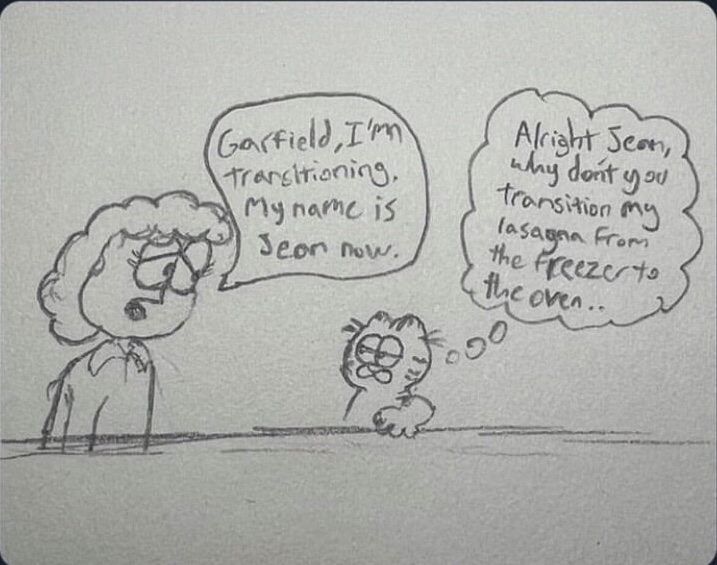 Garfield, I'm
transitioning.
My name is
Jean now.
Alright Jean,
why don't you
transition my
lasagna from
the freezer to
the oven..